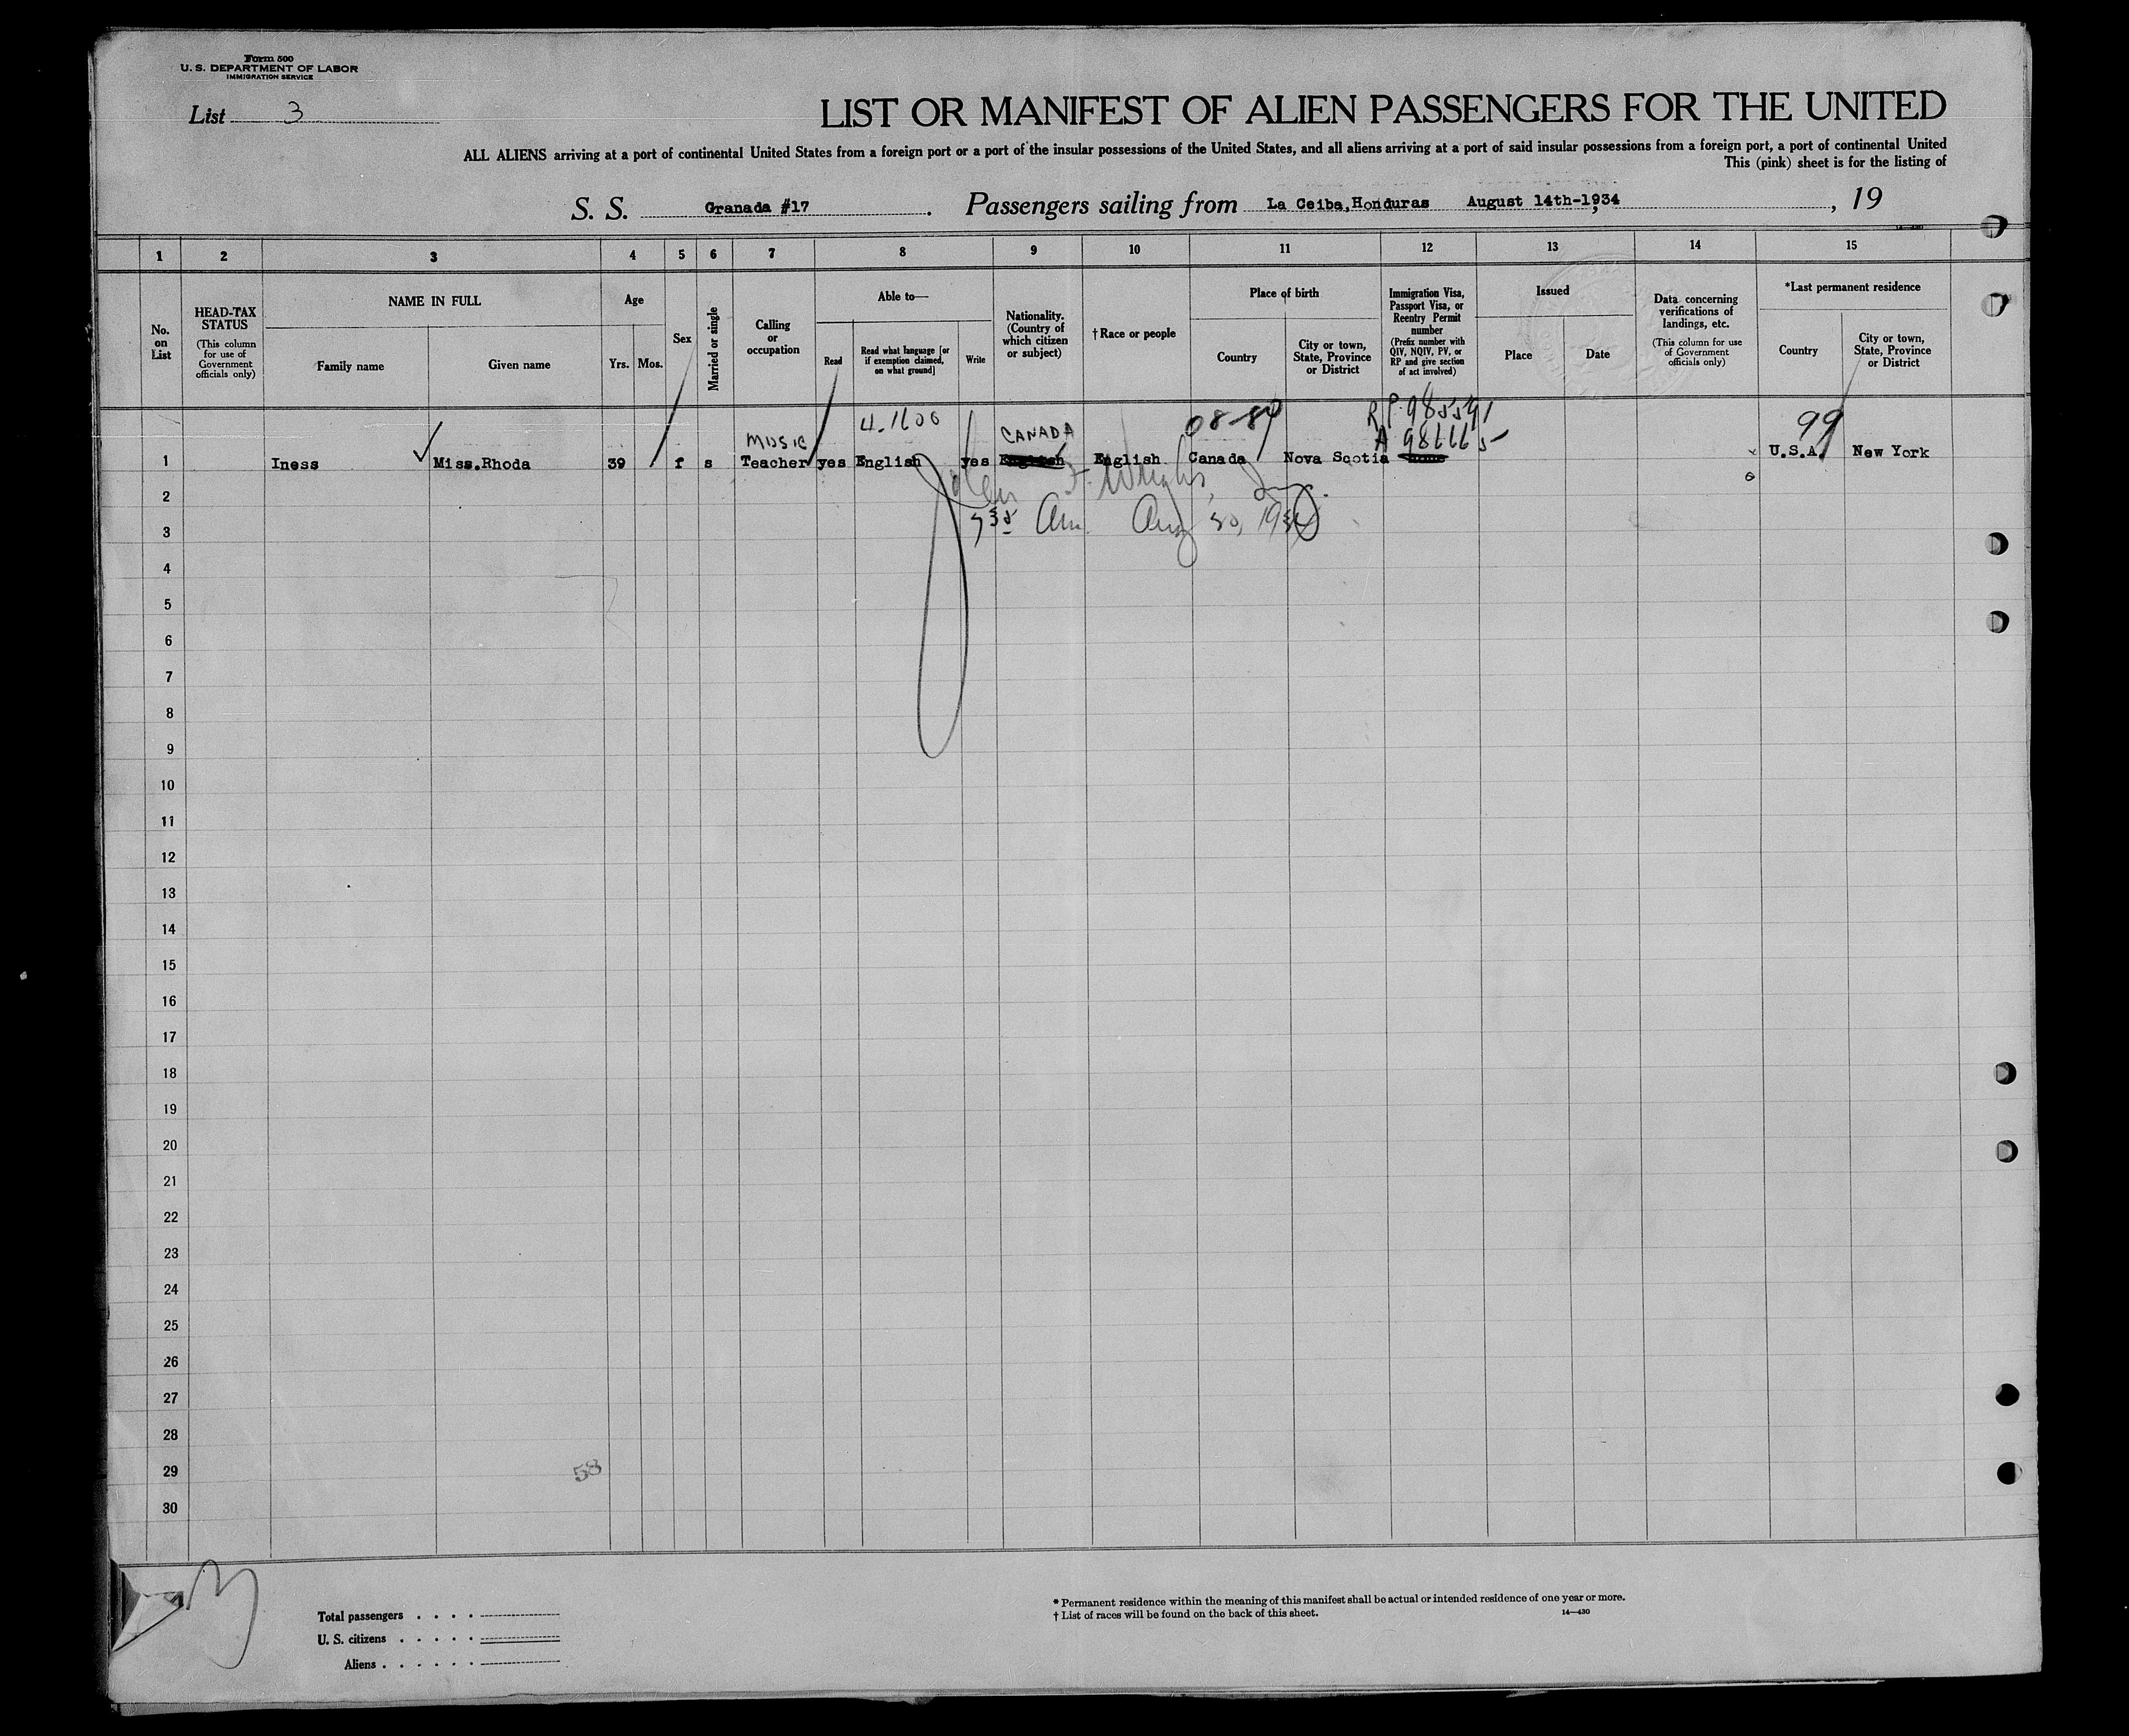 Form 500
U. S. DEPARTMENT OF LABOR
IMMIGRATION SERVICE
List 3
LIST OR MANIFEST OF ALIEN PASSENGERS FOR THE UNITED
ALL ALIENS arriving at a port of continental United States from a foreign port or a port of the insular possessions of the United States, and all aliens arriving at a port of said insular possessions from a foreign port, a port of continental United
This (pink) sheet is for the listing of
S. S. Granada #17. Passengers sailing from La Ceiba,Honduras August 14th-1934, 19
1 2 3 4 5 6 7 8 9 10 11 12 13 14 15
No. on List
HEAD-TAX STATUS (This column for use of Government officials only)
NAME IN FULL
Family name
Given name
Age
Yrs. Mos.
Sex
Married or single
Calling or occupation
Able to—
Read
Read what language [or if exemption claimed, on what ground]
Write
Nationality. (Country of which citizen or subject)
†Race or people
Place of birth
Country
City or town, State, Province or District
Immigration Visa, Passport Visa, or Reentry Permit number (Prefix number with QIV, NQIV, PV, or RP and give section of act involved)
Issued
Place
Date
Data concerning verifications of landings, etc. (This column for use of Government officials only)
*Last permanent residence
Country
City or town, State, Province or District
4-1600 08-84 RP 985591
MUSIC CANADA A 986665 99
1 Iness Miss.Rhoda 39 f s Teacher yes English yes English English Canada Nova Scotia none U.S.A. New York
2
7 35 Am Aug 30, 1934
3
4
5
6
7
8
9
10
11
12
13
14
15
16
17
18
19
20
21
22
23
24
25
26
27
28
29
58
30
Total passengers . . . .
U. S. citizens . . . . .
Aliens . . . . . .
* Permanent residence within the meaning of this manifest shall be actual or intended residence of one year or more.
† List of races will be found on the back of this sheet.
14—430